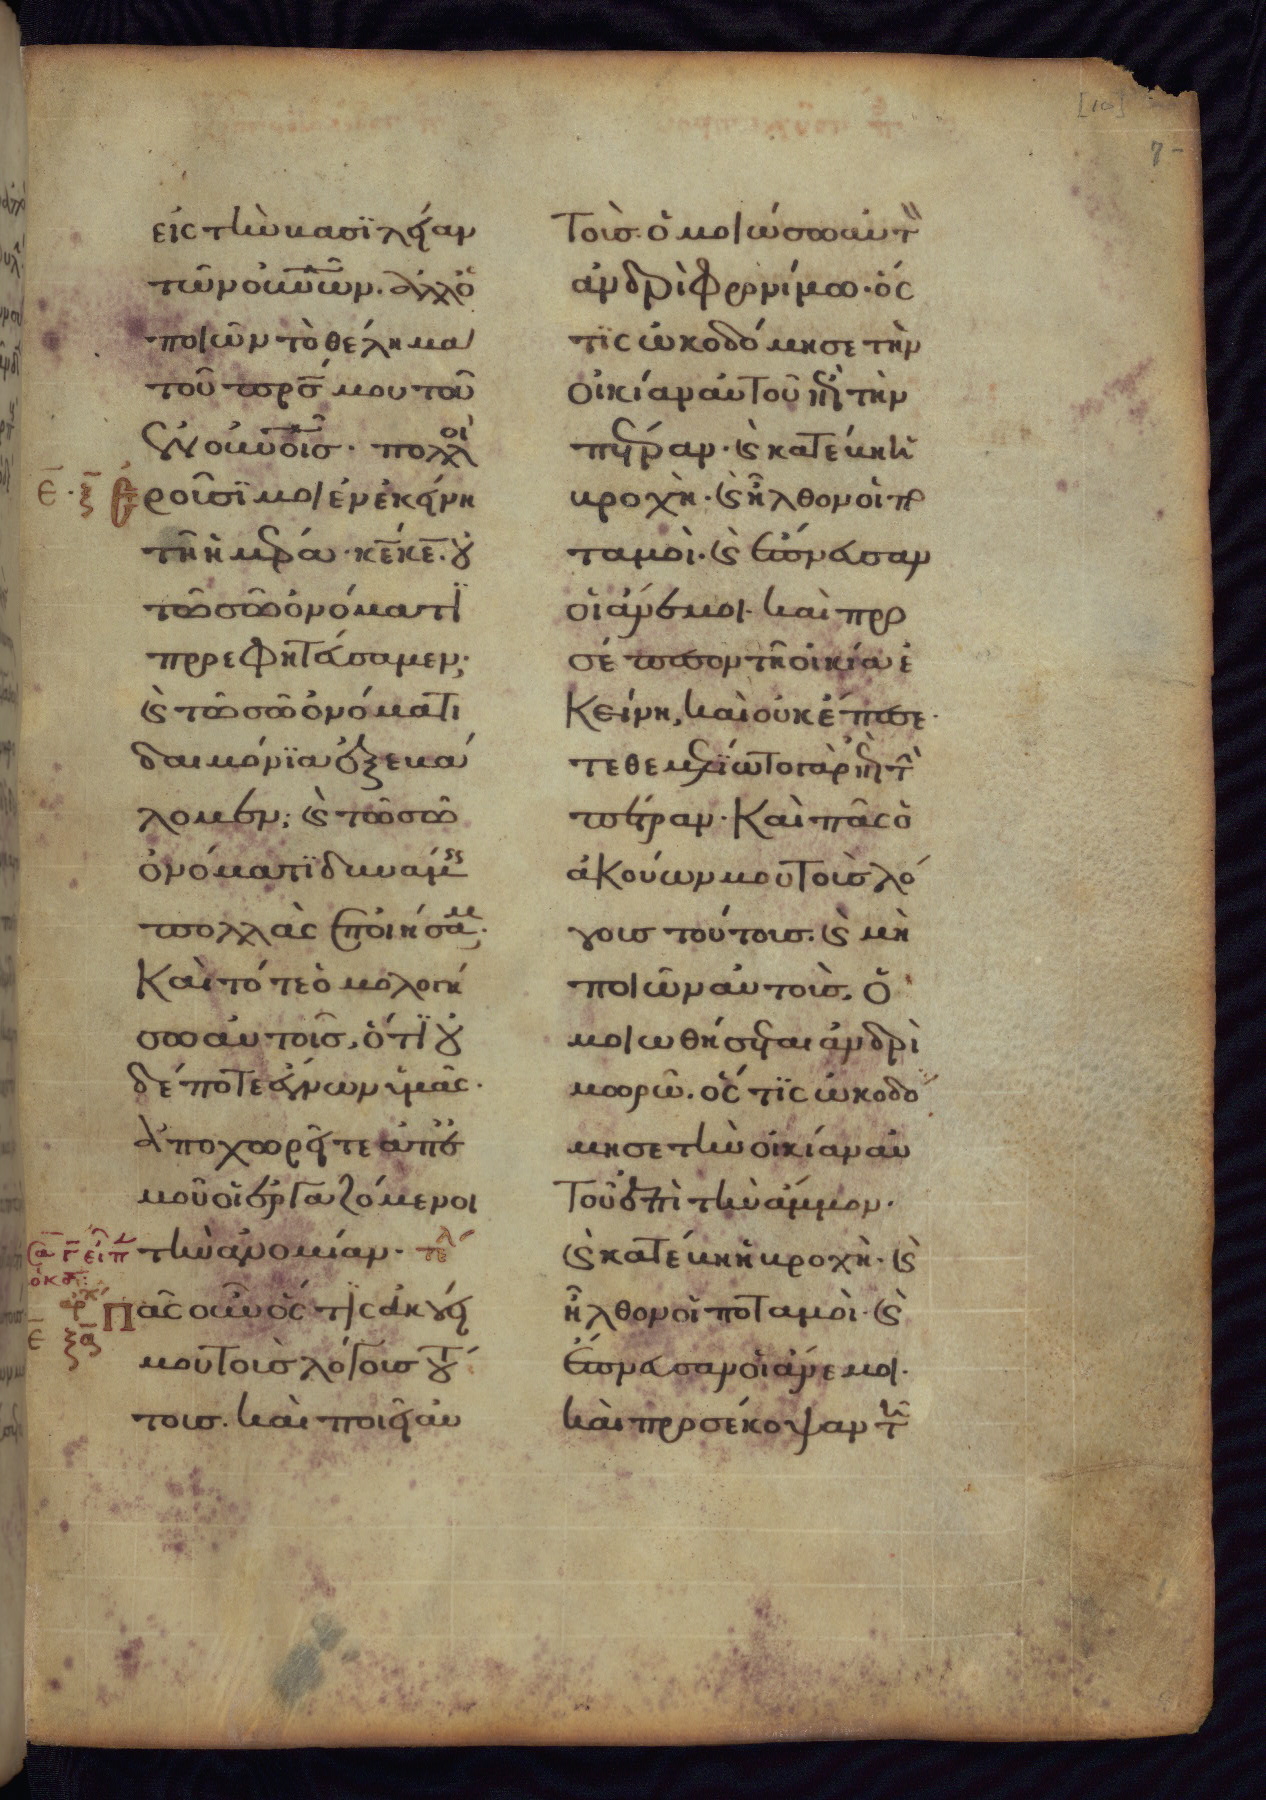 εἰς τὴν βασϊλείαν
τῶν οὐνῶν. ἀλλ ὁ
ποιῶν τὸ θέλημα
τοῦ πρσ μου τοῦ
ἐν οὐνοῖσ. πολλοὶ
ἐροῦσϊ μοι ἐν ἐκείνη
τῆ ἡμέρα. κε κε. οὐ
τῶ σῶ ὀνόματϊ
προεφητεύσαμεν;
ϗ τῶ σῶ ὀνόματι
δαιμόνϊα ἐξεβά
λομεν; ϗ τῶ σῶ
ὀνόματϊ δυνάμεις
πολλὰς ἐποιήσαμεν.
Καὶ τότε ὁμολογή
σω αὐτοῖσ, ὅτϊ οὐ
δέποτε ἔγνων ὑμᾶς.
ἀποχωρεῖτε ἀπ ἐ
μοῦ οἱ ἐργαζόμενοι
τὴν ἀνομίαν. τε
Πᾶς οὖν ὅς τϊς ἀκούει
μου τοὺσ λόγουσ τού
τουσ. καὶ ποιεῖ αὐ
τοὺσ. ὁμοιώσω αὐτὸν
ἀνδρὶ φρονίμω. ὅς
τϊς ὠκοδόμησε τὴν
οἰκίαν αὐτοῦ ἐπὶ τὴν
πέτραν. ϗ κατέβη ἡ
βροχὴ. ϗ ἦλθον οἱ πο
ταμοὶ. ϗ ἔπνευσαν
οἱ ἄνεμοι. καὶ προ
σέπεσον τῆ οἰκία ἐ
κείνη, καὶ οὐκ ἔπεσε.
τεθεμελίωτο γὰρ ἐπὶ τὴν
πέτραν. Καὶ πᾶς ὁ
ἀκούων μου τοὺσ λό
γουσ τούτουσ. ϗ μὴ
ποιῶν αὐτοὺσ, ὁ
μοιωθήσεται ἀνδρὶ
μωρῶ. ὅς τϊς ὠκοδό
μησε τὴν οἰκίαν αὐ
τοῦ ἐπὶ τὴν ἄμμον.
ϗ κατέβη ἡ βροχὴ. ϗ
ἦλθον οἱ ποταμοὶ. ϗ
ἔπνευσαν οἱ ἄνεμοι.
καὶ προσέκοψαν τῆ